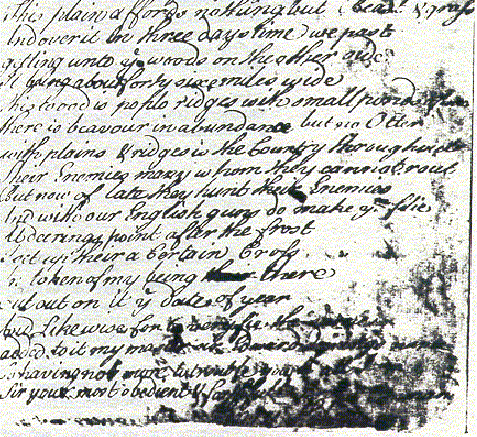 This plain affords nothing but Beast & grass
And over it in three days time we past
getting unto ye woods on the other side
It being about forty sixe miles wide
This wood is poplo ridges with small ponds of
there is beavour in abundance but no Otter
with plains & ridges in the Country throughout
Their Enemies many whom they cannot rout
But now of late they hunt their Enemies
And with our English guns do make ym flie
At deerings point after the frost
set up their a Certain Cross
In token of my being there
Cut out on it ye date of year
And Likewise for to veryfie the
added to it my master
So having not more to trouble you
Sir your most obedient &